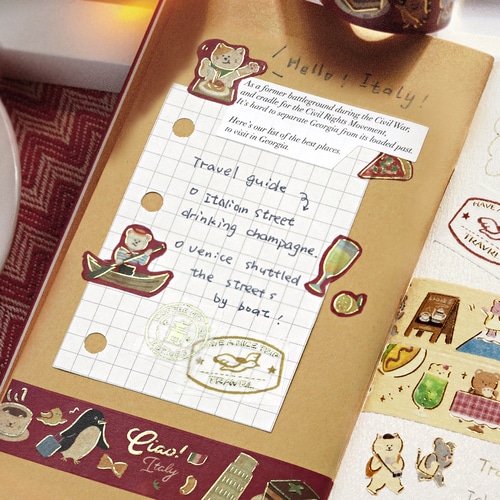 Hello! Italy!
As a former battleground during the Civil War,
and cradle for the Civil Rights Movement,
It's hard to separate Georgia from its loaded past.
Here's our list of the best places
to visit in Georgia.
Travel guide
o Italian street
drinking champagne.
o Venice shuttled
the streets
by boat!
HAVE A NICE
TRAVEL
Ciao!
Italy